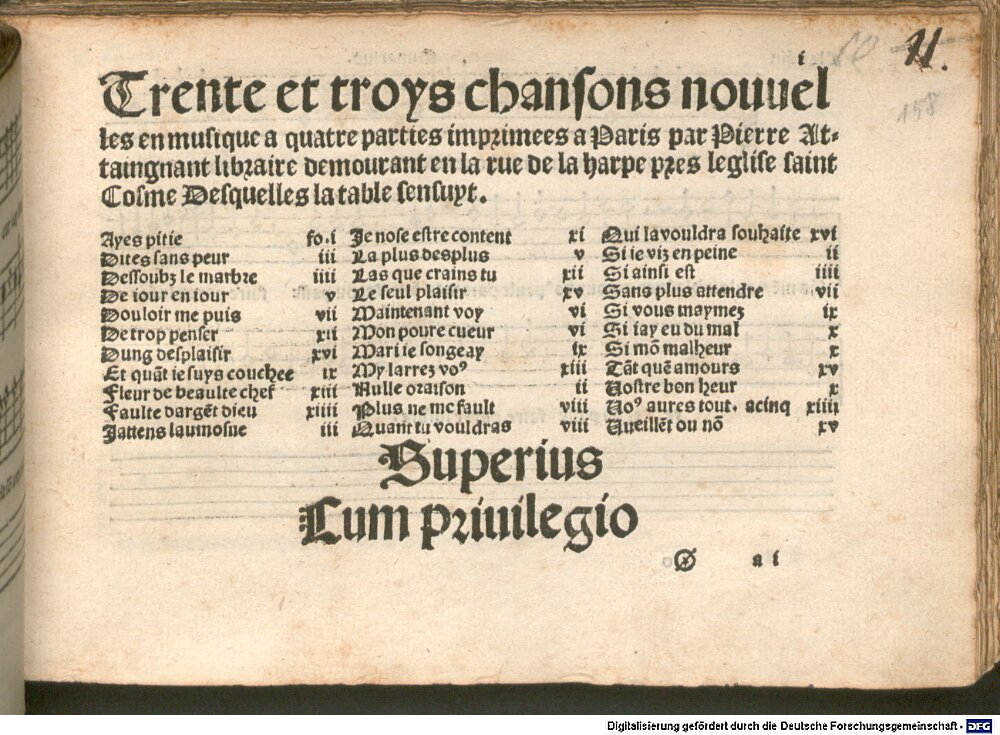 i
11.
158
Trente et troys chansons nouuel
les en musique a quatre parties imprimees a Paris par Pierre At-
taingnant libraire demourant en la rue de la harpe pres leglise saint
Cosme Desquelles la table sensuyt.
Ayes pitie fo.i
Dites sans peur iii
Dessoubz le marbre iiii
De iour en iour v
Douloir me puis vii
De trop penser xii
Dung desplaisir xvi
Et quāt ie suys couchee ix
Fleur de beaulte chef xiii
Faulte dargēt dieu xiiii
Jattens laumosne iii
Je nose estre content xi
La plus desplus v
Las que crains tu xii
Le seul plaisir xv
Maintenant voy vi
Mon poure cueur vi
Mari ie songeay ix
My larrez voꝰ xiii
Nulle oraison ii
Plus ne me fault viii
Quant tu vouldras viii
Qui la vouldra souhaite xvi
Si ie viz en peine ii
Si ainsi est iiii
Sans plus attendre vii
Si vous maymez ix
Si iay eu du mal x
Si mō malheur x
Tāt quē amours xv
Vostre bon heur x
Voꝰ aures tout. acinq xiiii
Vueillēt ou nō xv
Superius
Cum priuilegio
a i
Digitalisierung gefördert durch die Deutsche Forschungsgemeinschaft - DFG